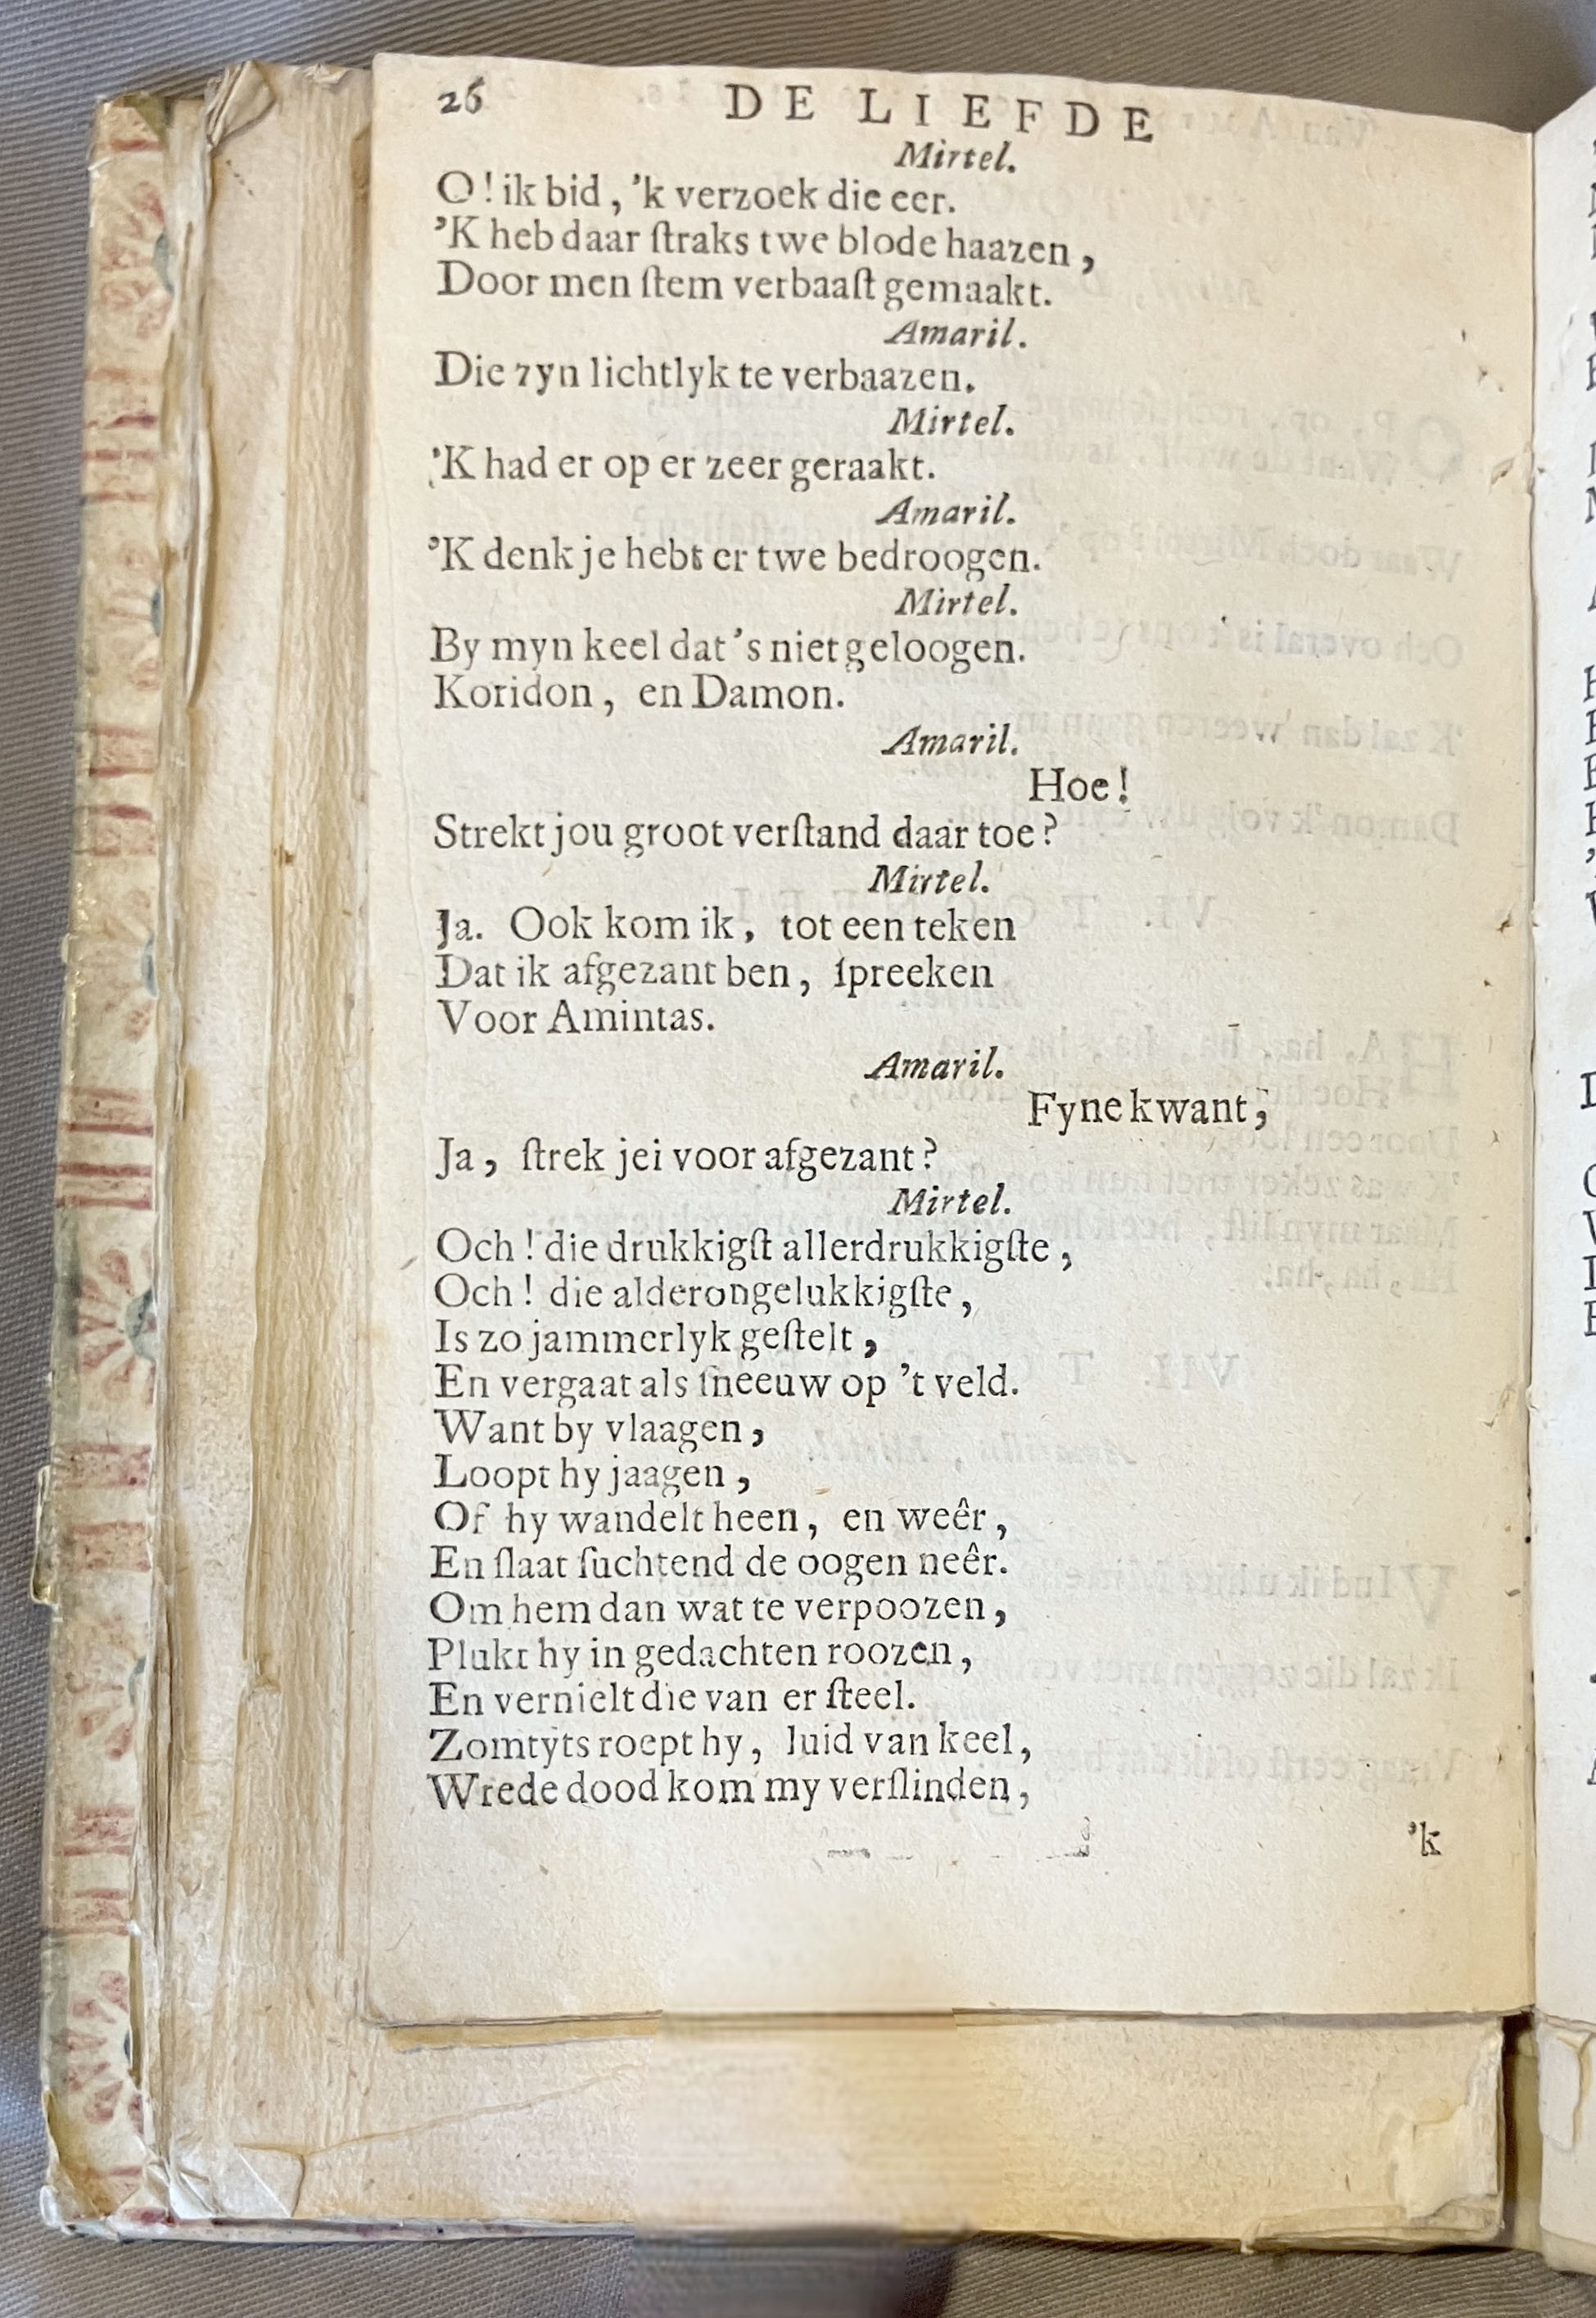 26 DE LIEFDE
Mirtel.
O! ik bid, 'k verzoek die eer.
'K heb daar ſtraks twe blode haazen,
Door men ſtem verbaaſt gemaakt.
Amaril.
Die zyn lichtlyk te verbaazen.
Mirtel.
'K had er op er zeer geraakt.
Amaril.
'K denk je hebt er twe bedroogen.
Mirtel.
By myn keel dat 's niet geloogen.
Koridon, en Damon.
Amaril.
Hoe!
Strekt jou groot verſtand daar toe?
Mirtel.
Ja. Ook kom ik, tot een teken
Dat ik afgezant ben, ſpreeken
Voor Amintas.
Amaril.
Fyne kwant,
Ja, ſtrek jei voor afgezant?
Mirtel.
Och! die drukkigſt allerdrukkigſte,
Och! die alderongelukkigſte,
Is zo jammerlyk geſtelt,
En vergaat als ſneeuw op 't veld.
Want by vlaagen,
Loopt hy jaagen,
Of hy wandelt heen, en weêr,
En ſlaat ſuchtend de oogen neêr.
Om hem dan wat te verpoozen,
Plukt hy in gedachten roozen,
En vernielt die van er ſteel.
Zomtyts roept hy, luid van keel,
Wrede dood kom my verſlinden,
'k